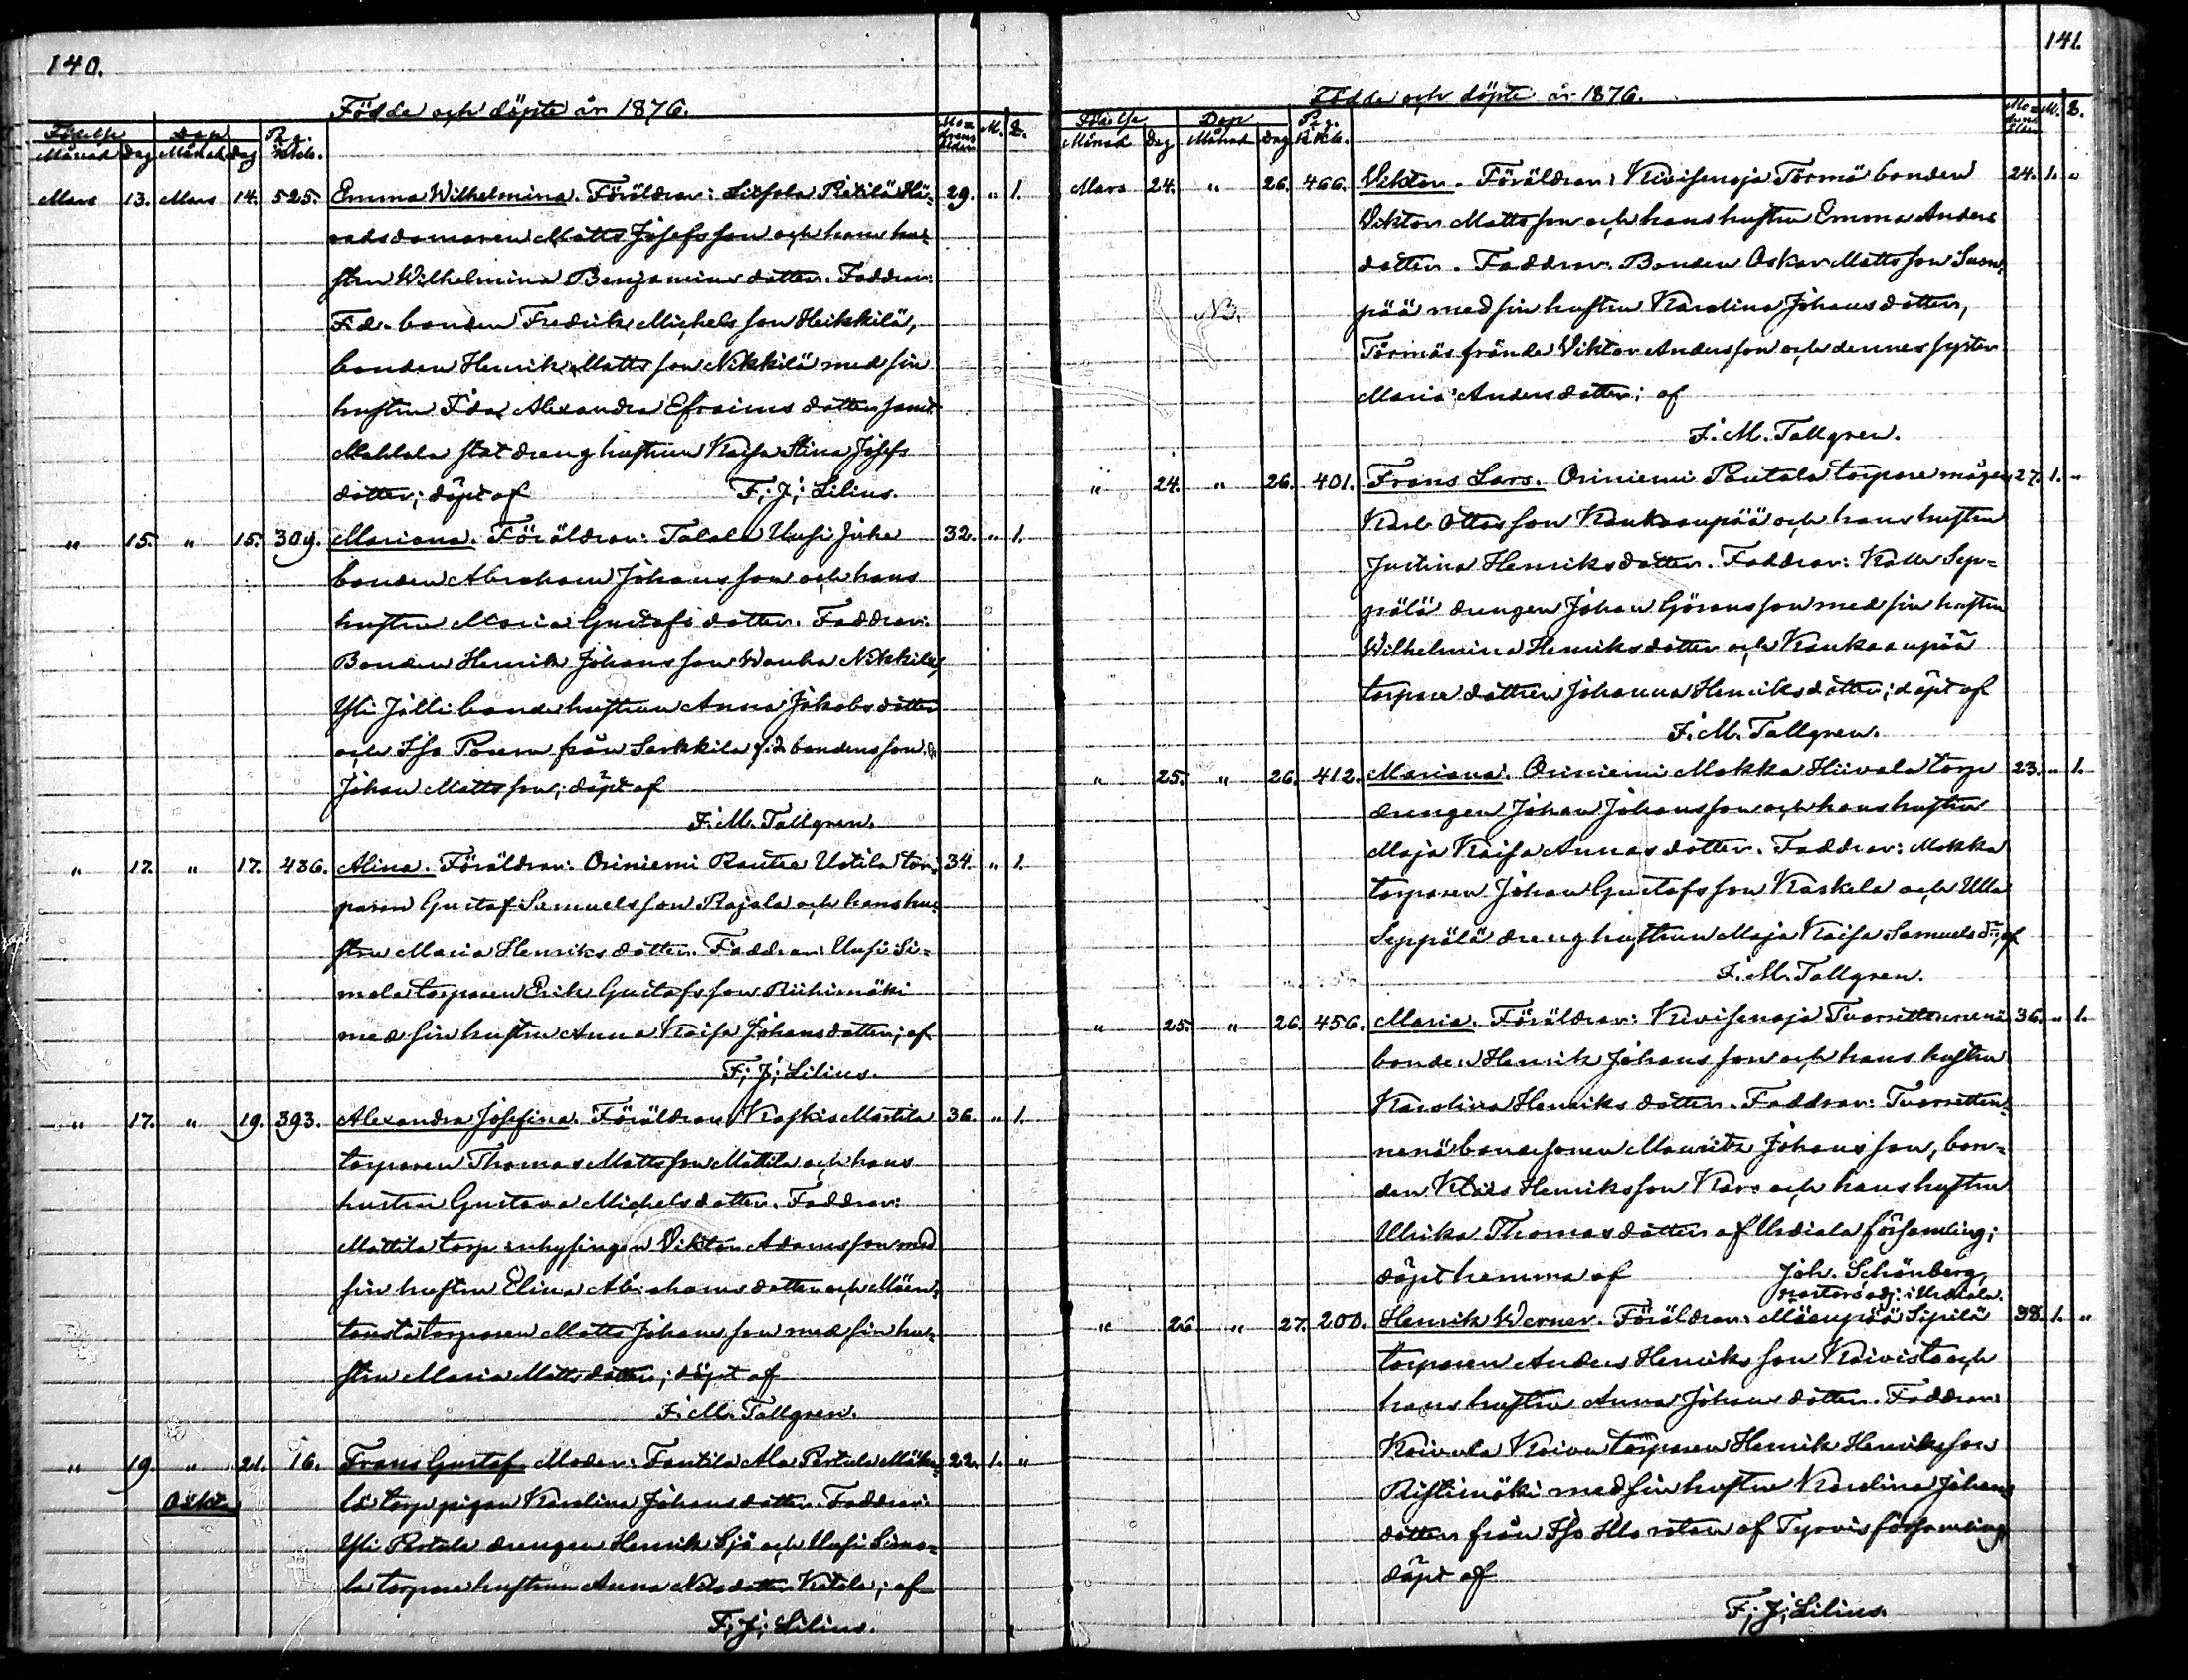 140.
Födde och döpte år 1876.
Födelse Dop Pag. Mo=
Månad Dag Månad Dag kkb. drens ålder M. Q.
Mars 13. Mars 14. 525. Emma Wilhelmina. Föräldrar: Rätilä Hä= 29. " 1.
radsdomaren Matts Josefsson och hans hu=
stru Wilhelmina Benjaminsdotter. Faddrar:
F.d. bonden Fredrik Michelsson Heikkilä,
bonden Henrik Mattsson Nikkilä med sin
hustru Ida Alexandra Efraimsdotter samt
statdreng hustrun Kaisa Stina Josefs
dotter; döpt af F; J; Lilius.
" 15. " 15. 309. Mariana. Föräldrar: Talala Uusi Juke 32. " 1.
bonden Abraham Johansson och hans
hustru Maria Gustafsdotter. Faddrar:
Bonden Henrik Johansson Wanha Nikkilä,
Yli Jilli bondehustrun Anna Jakobsdotter
och Iso from Sarkkila f.d. bondens son
Johan Mattsson; döpt af
F. M. Tallgren.
" 17. " 17. 436. Alina. Föräldrar: Oriniemi Rautee Uotila tor= 34. " 1.
paren Gustaf Samuelsson Rajala och hans hu=
stru Maria Henriksdotter. Faddrar: Uusi Si=
mola torparen Erik Gustafsson Riihimäki
med sin hustru Anna Kaisa Johansdotter; af
F; J; Lilius.
" 17. " 19. 393. Alexandra Josefina. Föräldrar: Mattila 36. " 1.
torparen Thomas Mattsson Mattila och hans
hustru Gustava Michelsdotter. Faddrar:
Mattila torp inhysingen Viktor Adamsson med
sin hustru Elina Abrahamsdotter och Mäen=
tausta torparen Matts Johansson med sin hu=
stru Maria Mattsdotter; döpt af
F. M. Tallgren.
" 19. " 21. 16. Frans Gustaf. Moder: Fantila Ala Pertula Mäke= 22. 1. "
Oäkta lä torp pigan Karolina Johansdotter. Faddrar:
Yli Pertula drengen Henrik Sjö och Uusi Simo=
la torpare hustrun Anna Nilsdotter Ketola; af
F; J; Lilius.
141.
Födde och döpte år 1876.
Födelse Dop Pag. Mo=
Månad Dag Månad Dag kkb. drens ålder M. Q.
Mars 24. " 26. 466. Viktor. Föräldrar: Kivisenoja Törmä bonden 24. 1. "
Viktor Mattsson och hans hustru Emma Anders
dotter. Faddrar: Bonden Oskar Mattsson Suon=
NB. pää med sin hustru Karolina Johansdotter,
Törmäs frände Viktor Andersson och dennes syster
Maria Andersdotter; af
F. M. Tallgren.
" 24. " 26. 401. Frans Lars. Oriniemi Pautala torpare mågen 27. 1. "
Karl Ottosson Kankaanpää och hans hustru
Justina Henriksdotter. Faddrar: Kalle Sep=
pälä drengen Johan Göransson med sin hustru
Wilhelmina Henriksdotter och Kankaanpää
torpare dottren Johanna Henriksdotter; döpt af
F. M. Tallgren.
" 25. " 26. 412. Mariana. Oriniemi Mokka Hiivala torp 23. " 1.
drengen Johan Johansson och hans hustru
Maja Kaisa Annasdotter. Faddrar: Mokka
torparen Johan Gustafsson Kaskela och Ulla
Seppälä dreng hustrun Maja Kaisa Samuelsdr; af
F. M. Tallgren.
" 25. " 26. 456. Maria. Föräldrar: Kivisenoja Tvorrittunenä 36. " 1.
bonden Henrik Johansson och hans hustru
Karolina Henriksdotter. Faddrar: Tvorrittun=
nenä bondesonen Mauritz Johansson, bon=
den Klaes Henriksson Karo och hans hustru
Ulrika Thomasdotter af Urdiala församling;
döpt hemma af Joh. Schönberg,
pastors adj. i Urdiala.
" 26 " 27. 200. Henrik Werner. Föräldrar: Mäenpää Sipilä 38. 1. "
torparen Anders Henriksson Koivisto och
hans hustru Anna Johansdotter. Faddrar:
Koivula Koivu torparen Henrik Henriksson
Ristimäki med sin hustru Karolina Johans
dotter från Iso Illo rotan af Tyrvis församling,
döpt af
F; J; Lilius.